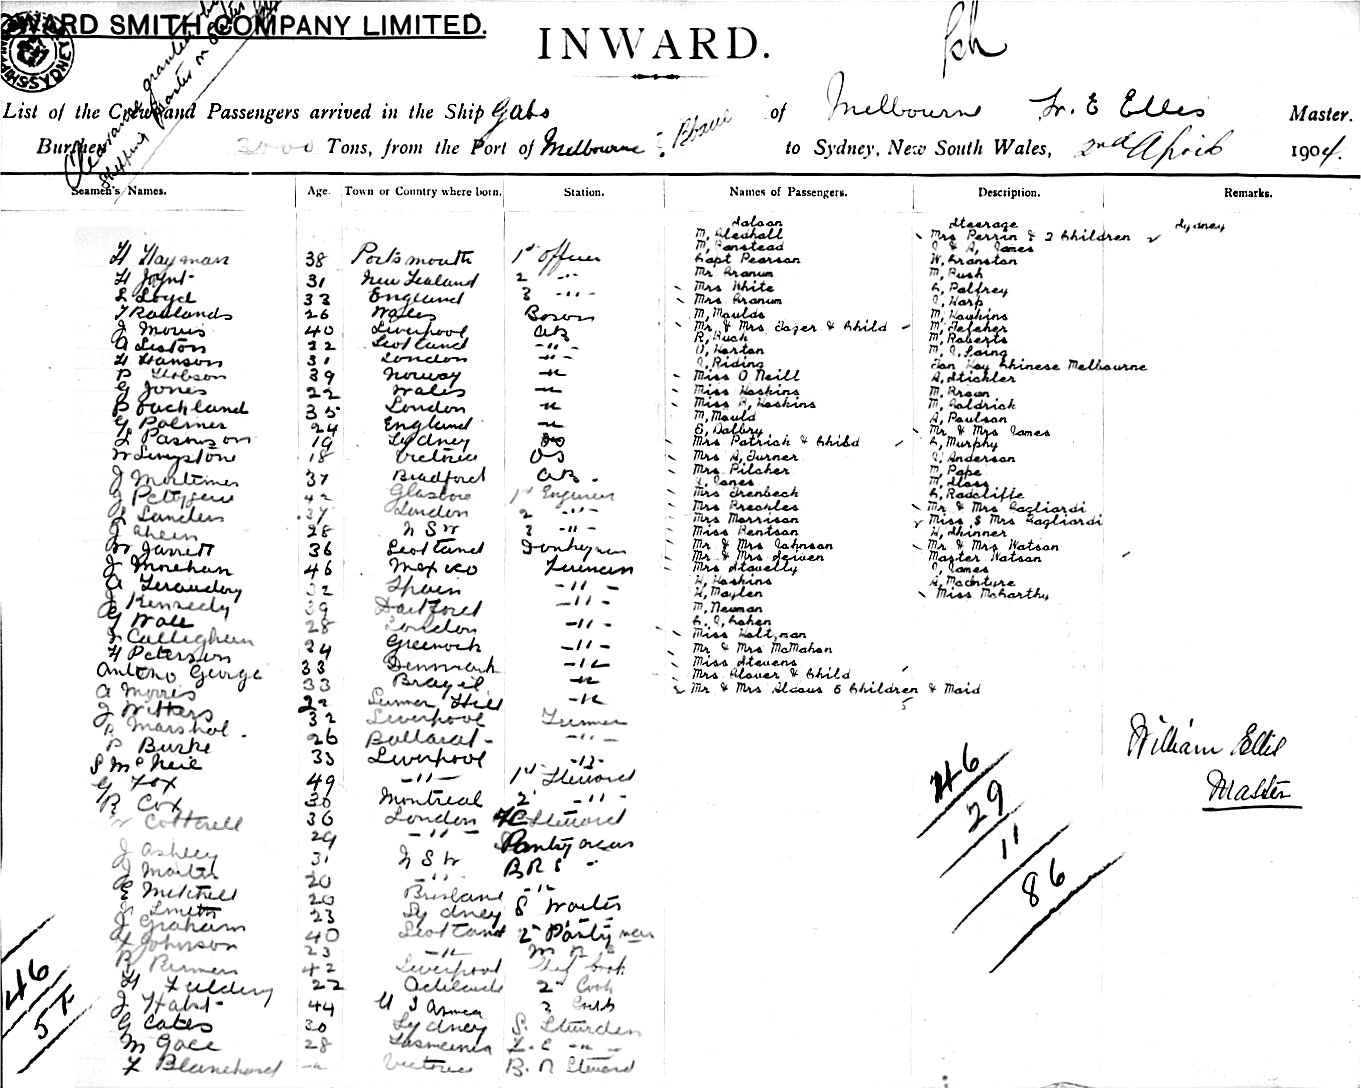 HOWARD SMITH COMPANY LIMITED.
INWARD.
List of the Crew and Passengers arrived in the Ship Gabo of Melbourne W. E Ellis Master.
Burthen 3000 Tons, from the Port of Melbourne to Sydney, New South Wales, 2nd April 1904.
Seamen's Names. Age. Town or Country where born. Station. Names of Passengers. Description. Remarks.
H Hayman 38 Portsmouth 1st Officer
H Joynt 31 New Zealand 2 -"-
L Loyd 33 England 3 -"-
T Rowlands 26 Wales Bosun
J Morris 40 Liverpool AB
A Liston 22 Scotland -"-
H Hanson 31 London -"-
P Hobson 39 Norway -"-
G Jones 22 Wales -"-
P Buckland 35 London -"-
G Palmer 24 England -"-
L Pasmson 19 Sydney
W Limpstone 18 Victoria OS
J Mortimer 37 Bradford AB.
J 42 Glasgow 1st Engineer
L Landers 37 London 2 -"-
J Ahern 28 N S W 3 -"-
W Jarrett 36 Scotland Donkeyman
J Monehan 46 Mexico Fireman
A 32 Spain -"-
J Kennedy 39 Dartford -"-
G Wall 28 London -"-
J Callaghan 34 Greenock -"-
H Peterson 33 Denmark -"-
Antono George 33 Brazil -"-
A Morris 22 Summer Hill -"-
J Witters 32 Liverpool Trimmer
P Marshal. 26 Ballarat -"-
P Burke 33 Liverpool -"-
S McNeil 49 -"- 1st Steward
G Fox 30 Montreal 2 -"-
R Cox 36 London FC Steward
W Cotterell 29 -"- Pantry man
J Ashley 31 N S W B R S
J Martin 20 -"- -"-
E Mitchell 20 Brisbane S Waiter
J Smith 23 Sydney -"-
J Graham 40 Scotland 2nd Pantry man
A Johnson 23 -"- M R S
R 42 Liverpool Chief Cook
H Fielding 22 Adelaide 2nd Cook
J Habst 44 U S America 3 Cook
G Cates 30 Sydney S. Stewardess
M Gall 28 Tasmania F.C -"-
F Blanchard -"- Victoria B. R Steward
Saloon
M, Gledhall
M, Banstead
Capt Pearson
Mr Granum
Mrs White
Mrs Granum
M, Moulds
Mr, & Mrs Sager & Child
R, Buck
V, Horton
J, Riding
Miss O Neill
Miss Hoskins
Miss R, Hoskins
M, Mould
E, Dalbry
Mrs Patrick & Child
Mrs A, Turner
Mrs Pilcher
J, Jones
Mrs Grenbeck
Mrs Breckles
Mrs Morrison
Miss Rentson
Mr & Mrs Johnson
Mr & Mrs Seiven
Mrs Stavelly
H, Hoskins
H, Maylen
M, Newman
C, J, Cohen
Miss Holtzman
Mr & Mrs McMahon
Miss Stevens
Mrs Glover & Child
Mr & Mrs Aldous 6 Children & Maid
5
Steerage Sydney
Mrs Perrin & 2 Children
J & A, James
W, Cranston
M, Rush
C, Palfrey
J, Harp
M, Hawkins
M, Fletcher
M, Roberts
M, J, Laing
Fan Hoy Chinese Melbourne
A, Stickler
M, Brown
M, Goldrick
A, Paulson
Mr & Mrs James
C, Murphy
J, Anderson
M, Pope
M, Gloss
C, Radcliffe
Mr & Mrs Gagliardi
Miss & Mrs Gagliardi
H, Skinner
Mr & Mrs Watson
Master Watson
J, James
A, MacIntyre
Miss McCarthy
William Ellis
Master
46
29
11
86
46
57